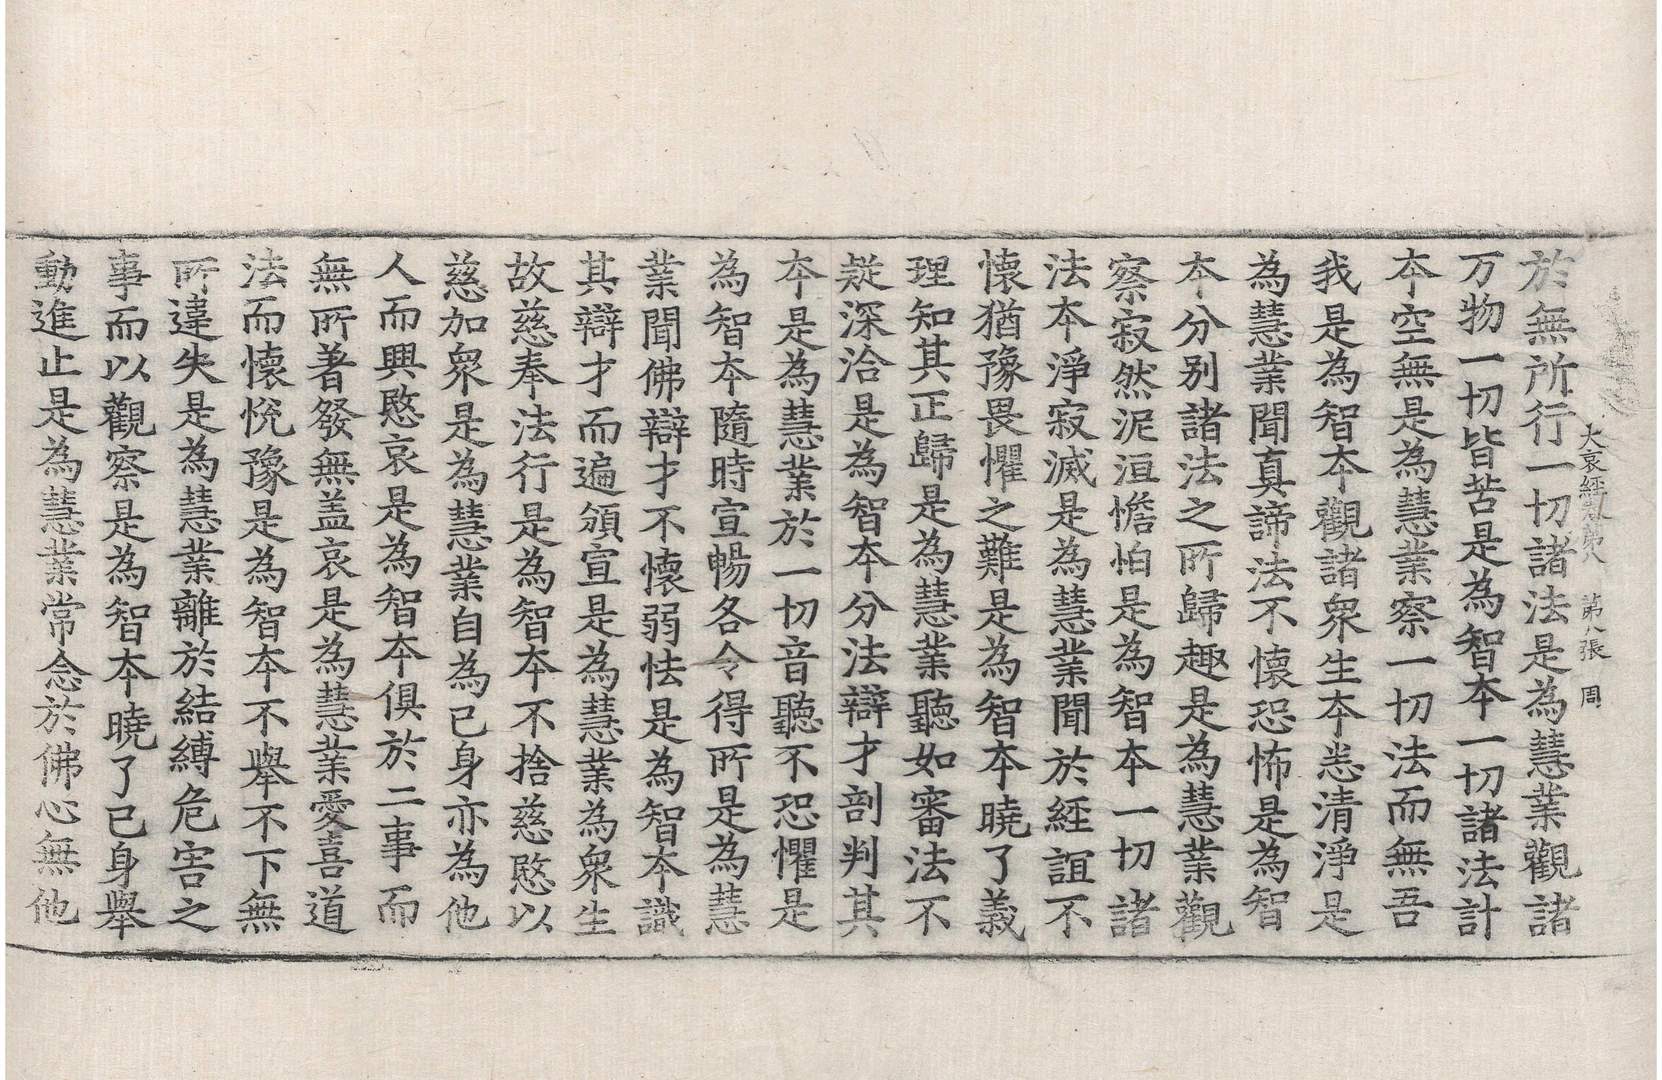 大哀經 第八 第八張 周
於無所行一切諸法是為慧業觀諸
万物一切皆苦是為智夲一切諸法計
夲空無是為慧業察一切法而無吾
我是為智夲觀諸衆生夲悉清淨是
為慧業聞真諦法不懷恐怖是為智
夲分别諸法之所歸趣是為慧業觀
察寂然泥洹憺怕是為智夲一切諸
法夲淨寂滅是為慧業聞於經誼不
懷猶豫畏懼之難是為智夲曉了義
理知其正歸是為慧業聽如審法不
疑深洽是為智夲分法辯才剖判其
夲是為慧業於一切音聽不恐懼是
為智夲隨時宣暢各令得所是為慧
業聞佛辯才不懷弱怯是為智夲識
其辯才而遍頒宣是為慧業為衆生
故慈奉法行是為智夲不捨慈愍以
慈加衆是為慧業自為已身亦為他
人而興愍哀是為智夲俱於二事而
無所著發無盖哀是為慧業愛喜道
法而懷悅豫是為智夲不舉不下無
所違失是為慧業離於結縛危害之
事而以觀察是為智夲曉了已身舉
動進止是為慧業常念於佛心無他